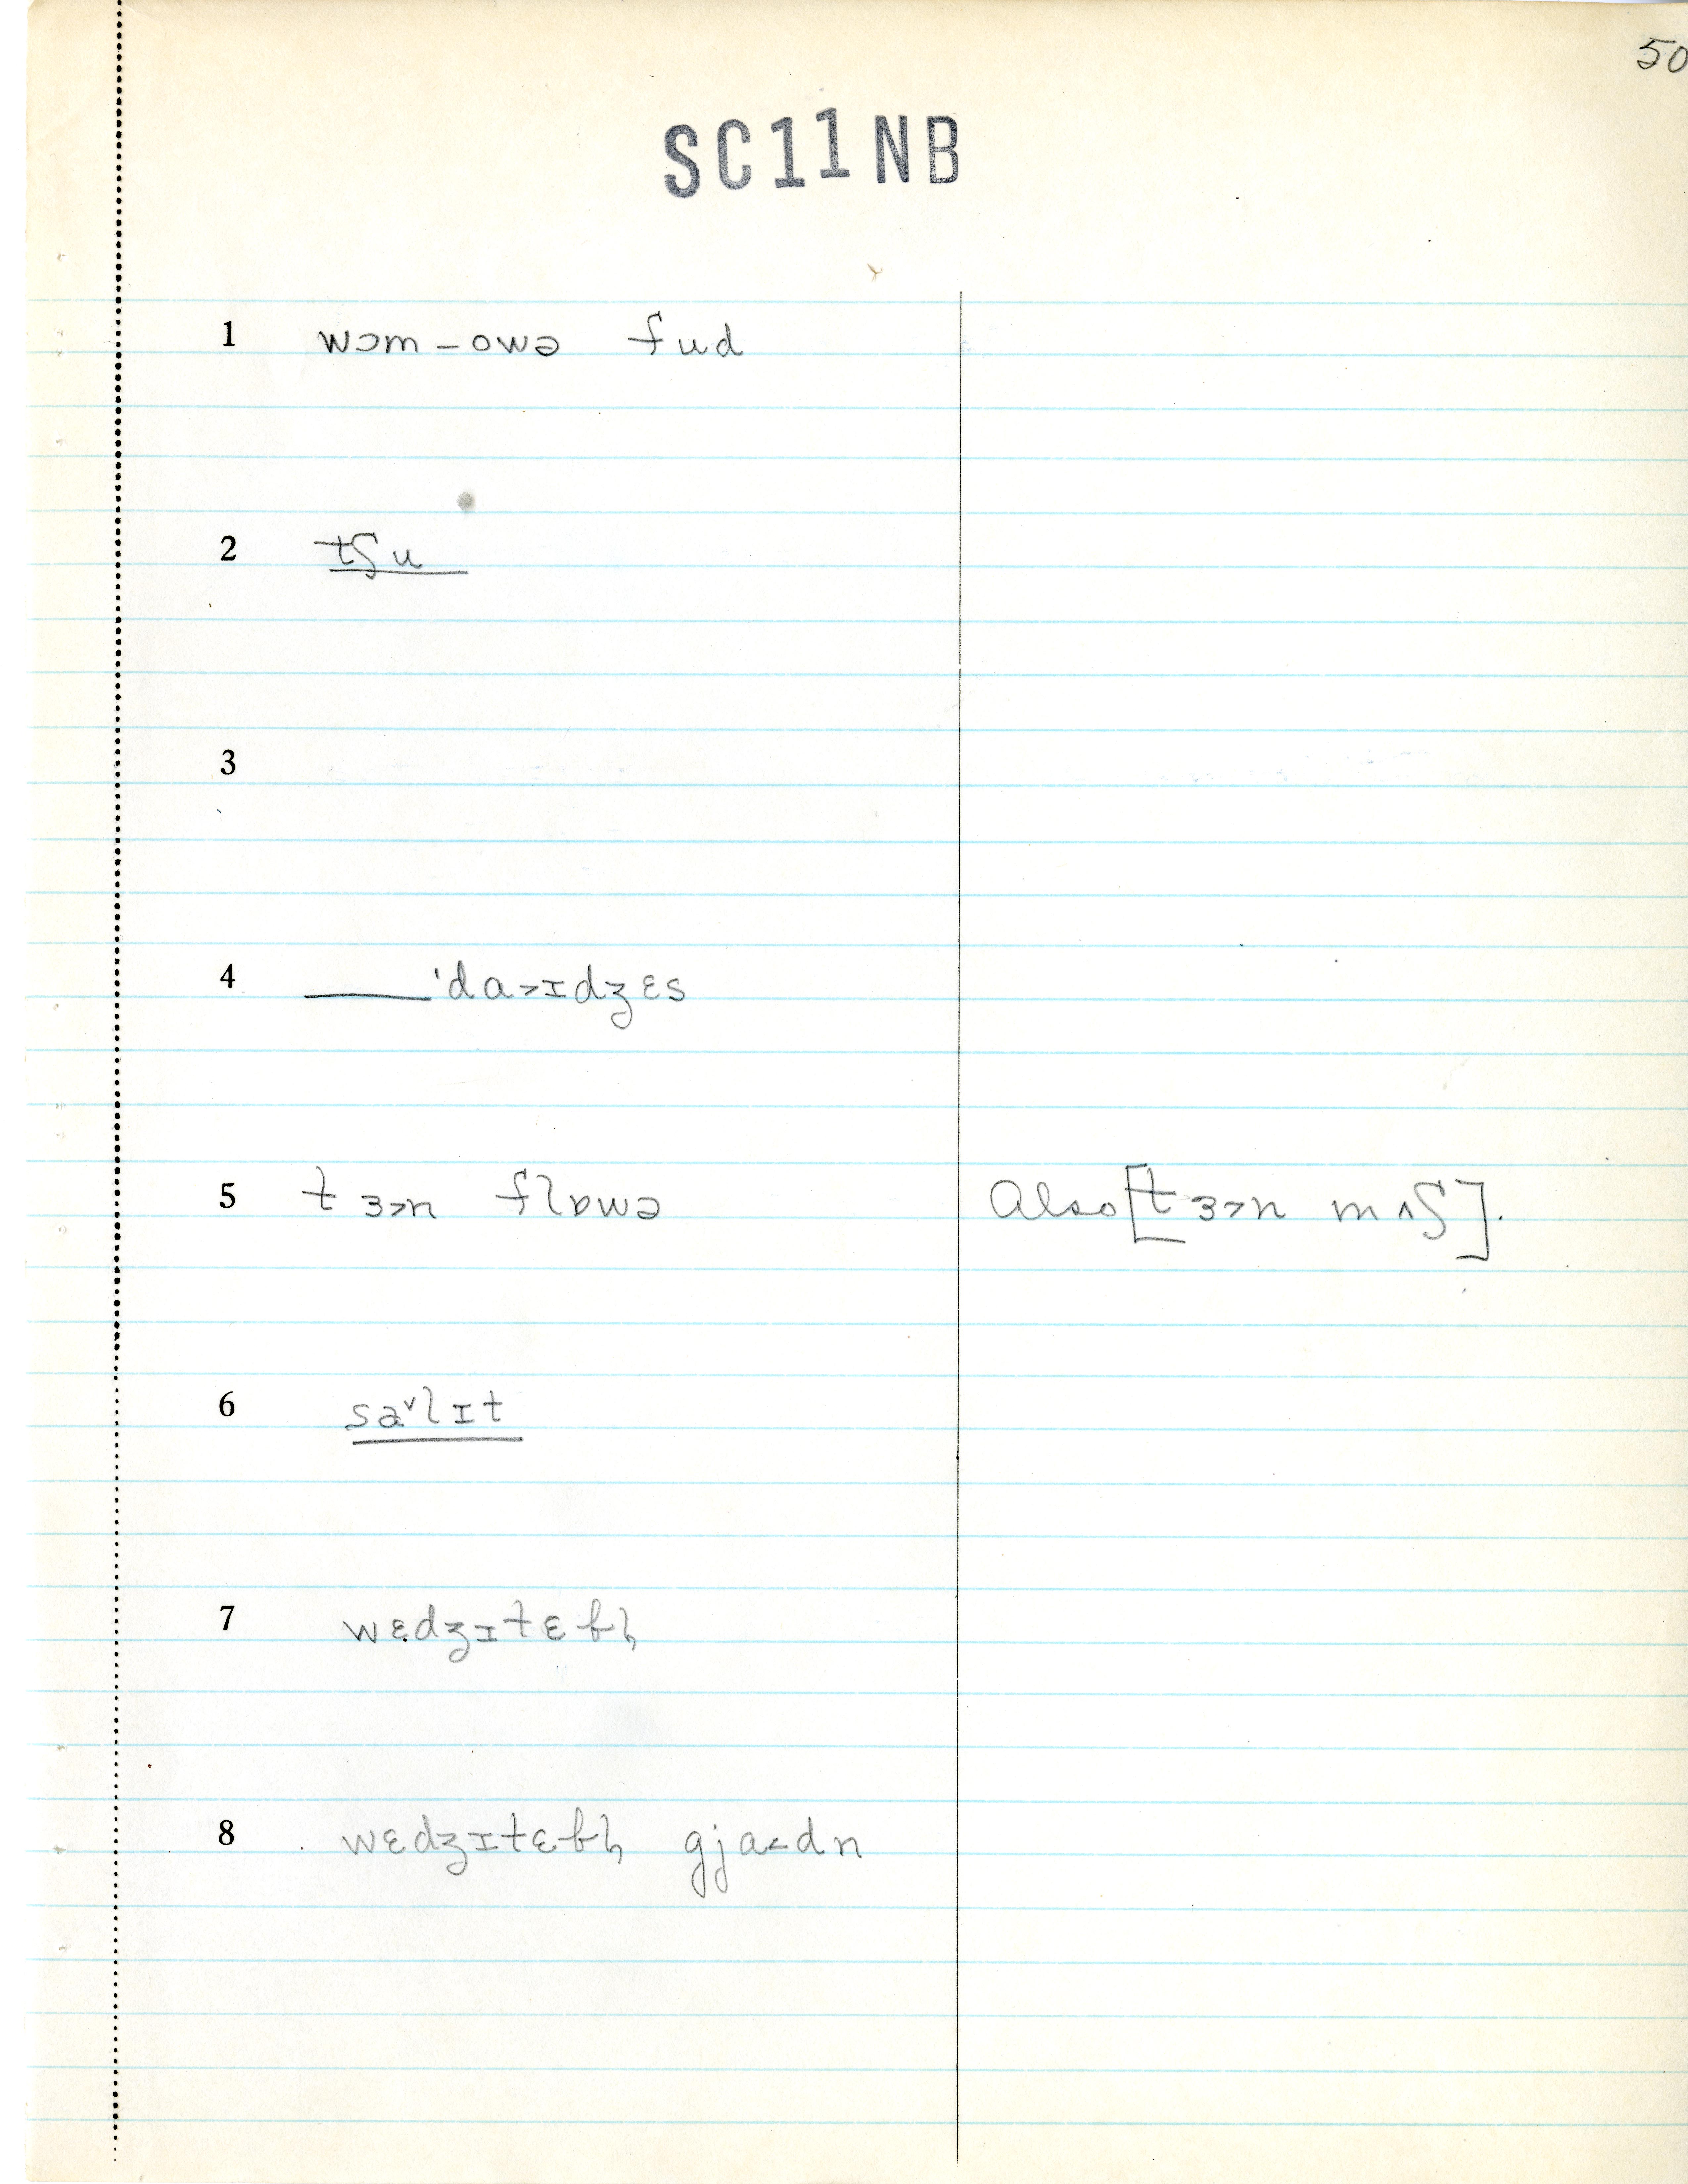 50
SC11NB
1 wɔm-owə fud
2 tʃu
3
4 ____ˈda>ɪdʒɛs
5 t ɜ>n flɒwə Also [t ɜ>n mʌʃ].
6 sa˅lɪt
7 wɛdʒɪtɛbl̩
8 wɛdʒɪtɛbl̩ gja<dn